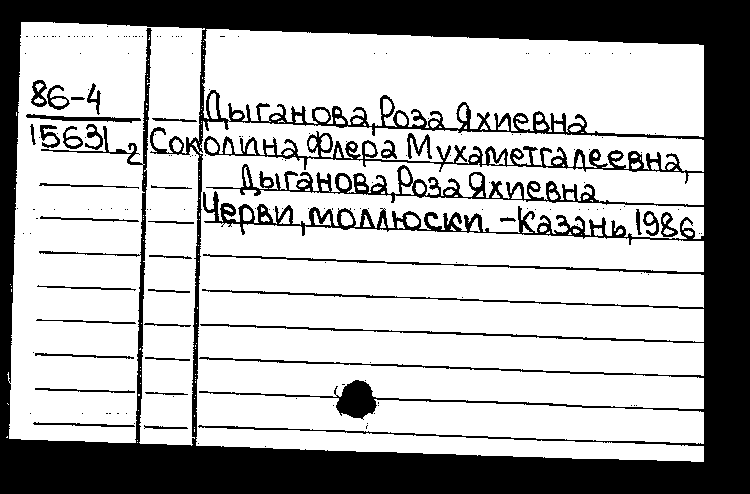 86-4
Дыганова, Роза Яхиевна.
15631-2 Соколина, Флера Мухаметгалеевна,
Дыганова, Роза Яхиевна.
Черви, моллюски. -Казань, 1986.